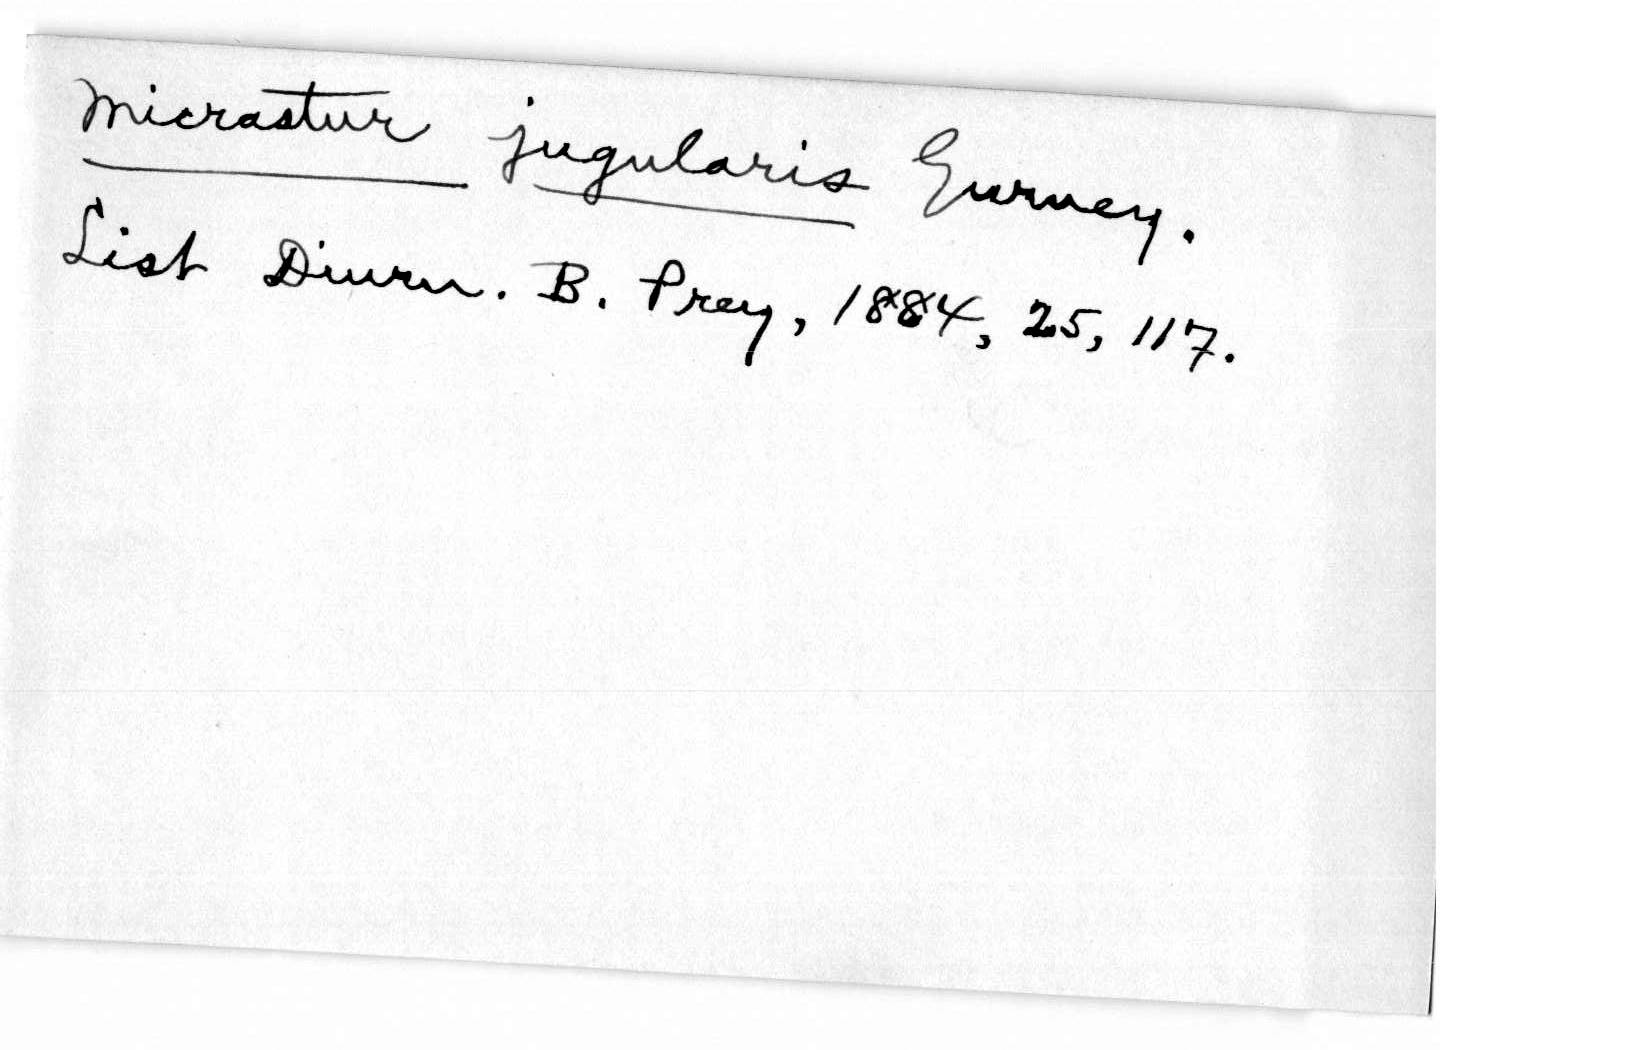 Micrastur jugularis Gurney.
List Diurn. B. Prey, 1884, 25, 117.